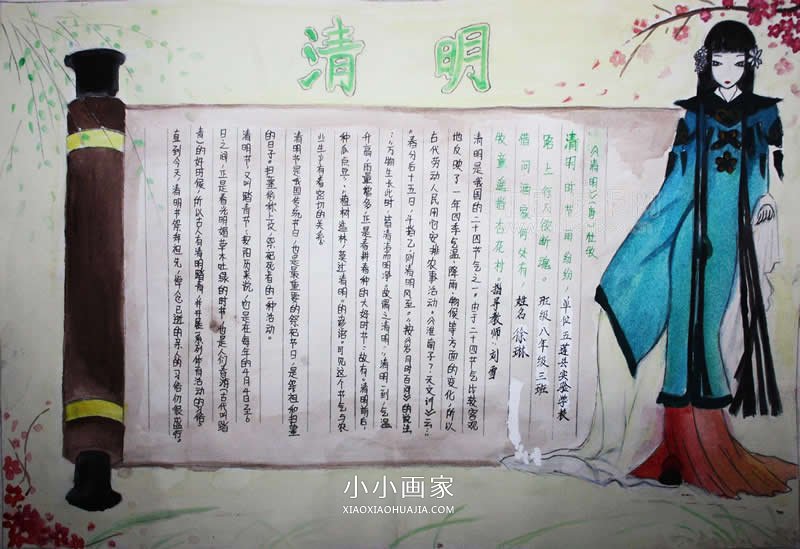 清明
《清明》(唐)杜牧
清明时节雨纷纷，单位五莲县实验学校
路上行人欲断魂。班级八年级三班
借问酒家何处有，姓名徐琳
牧童遥指杏花村。指导教师：刘雪
清明是我国的二十四节气之一。由于二十四节气比较客观
地反映了一年四季气温、降雨、物候等方面的变化，所以
古代劳动人民用它安排农事活动。《淮南子·天文训》云：
“春分后十五日，斗指乙，则清明风至。”按《岁时百问》的说法
：“万物生长此时，皆清洁而明净。故谓之清明。”清明一到，气温
升高，雨量增多，正是春耕春种的大好时节。故有“清明前后，
种瓜点豆”；“植树造林，莫过清明”的农谚。可见这个节气与农
业生产有着密切的关系。
清明节是我国传统节日，也是最重要的祭祀节日，是祭祖和扫墓
的日子。扫墓俗称上坟，祭祀死者的一种活动。
清明节，又叫踏青节，按阳历来说，它是在每年的4月4日至6
日之间，正是春光明媚草木吐绿的时节，也是人们春游（古代叫踏
青）的好时候，所以古人有清明踏青，并开展一系列体育活动的习俗
直到今天，清明节祭拜祖先，悼念已逝的亲人的习俗仍很盛行。
小小画家
XIAOXIAOHUAJIA.COM